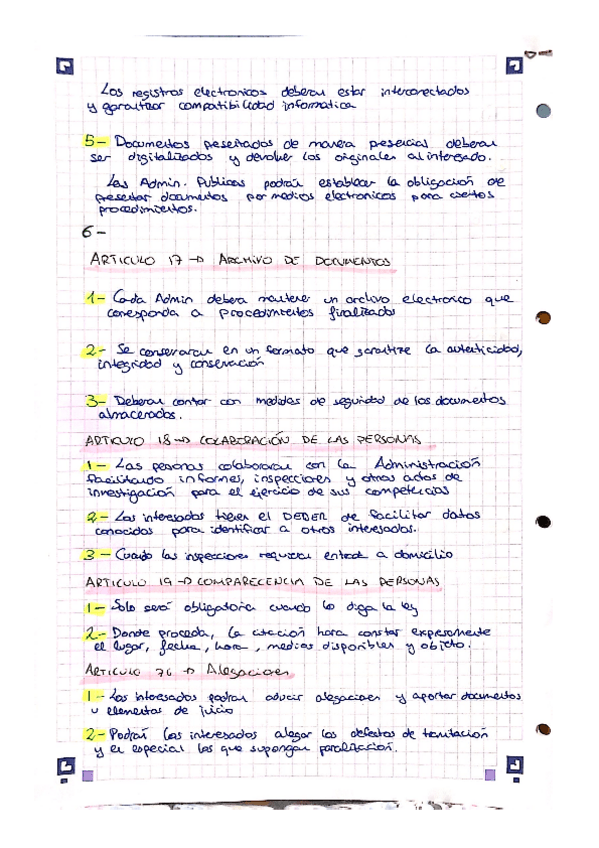 Los registros electronicos deberan estar interconectados
y garantizar compatibilidad informatica
5- Documentos presentados de manera presencial deberan
ser digitalizados y devolver los originales al interesado.
Las Admin. Publicas podrán establecer la obligación de
presentar documentos por medios electronicos para ciertos
procedimientos.
6-
ARTICULO 17 → ARCHIVO DE DOCUMENTOS
1- Cada Admin debera mantener un archivo electronico que
corresponda a procedimientos finalizados
2- Se conservaran en un formato que garantize la autenticidad,
integridad y conservación
3- Deberan contar con medidas de seguridad de los documentos
almacenados.
ARTICULO 18 → COLABORACIÓN DE LAS PERSONAS
1- Las personas colaboraran con la Administración
facilitando informes, inspecciones y otros actos de
investigación para el ejercicio de sus competencias
2- Los interesados tienen el DEBER de facilitar datos
conocidos para identificar a otros interesados.
3- Cuando las inspecciones requieran entrada a domicilio
ARTICULO 19 → COMPARECENCIA DE LAS PERSONAS
1- Solo será obligatoria cuando lo diga la ley
2- Donde proceda, la citación hara constar expresamente
el lugar, fecha, hora, medios disponibles y objeto.
ARTICULO 76 → Alegaciones
1- Los interesados podran aducir alegaciones y aportar documentos
u elementos de juicio
2- Podrán los interesados alegar los defectos de tramitación
y en especial los que supongan paralización.